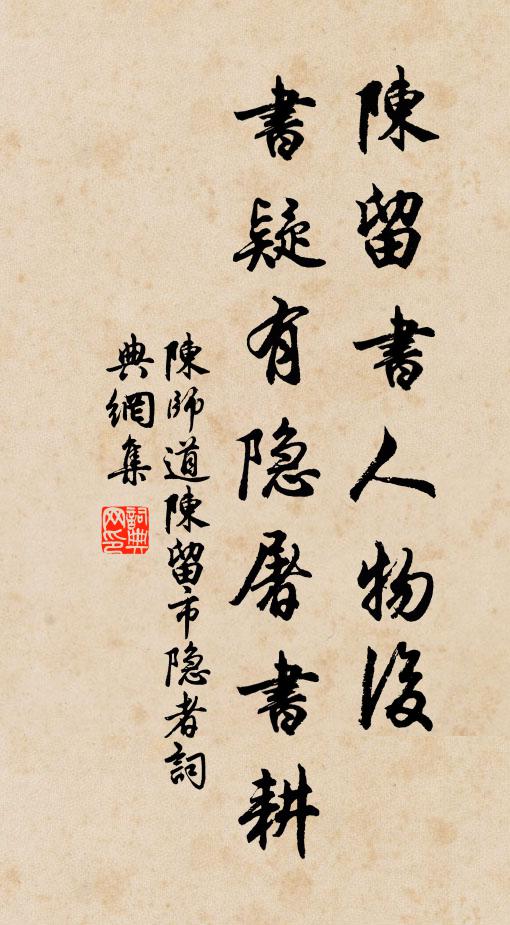 陳留書人物後
書疑有隐屠書耕
陳師道陳留市隐者詞
典網集
詞典網印